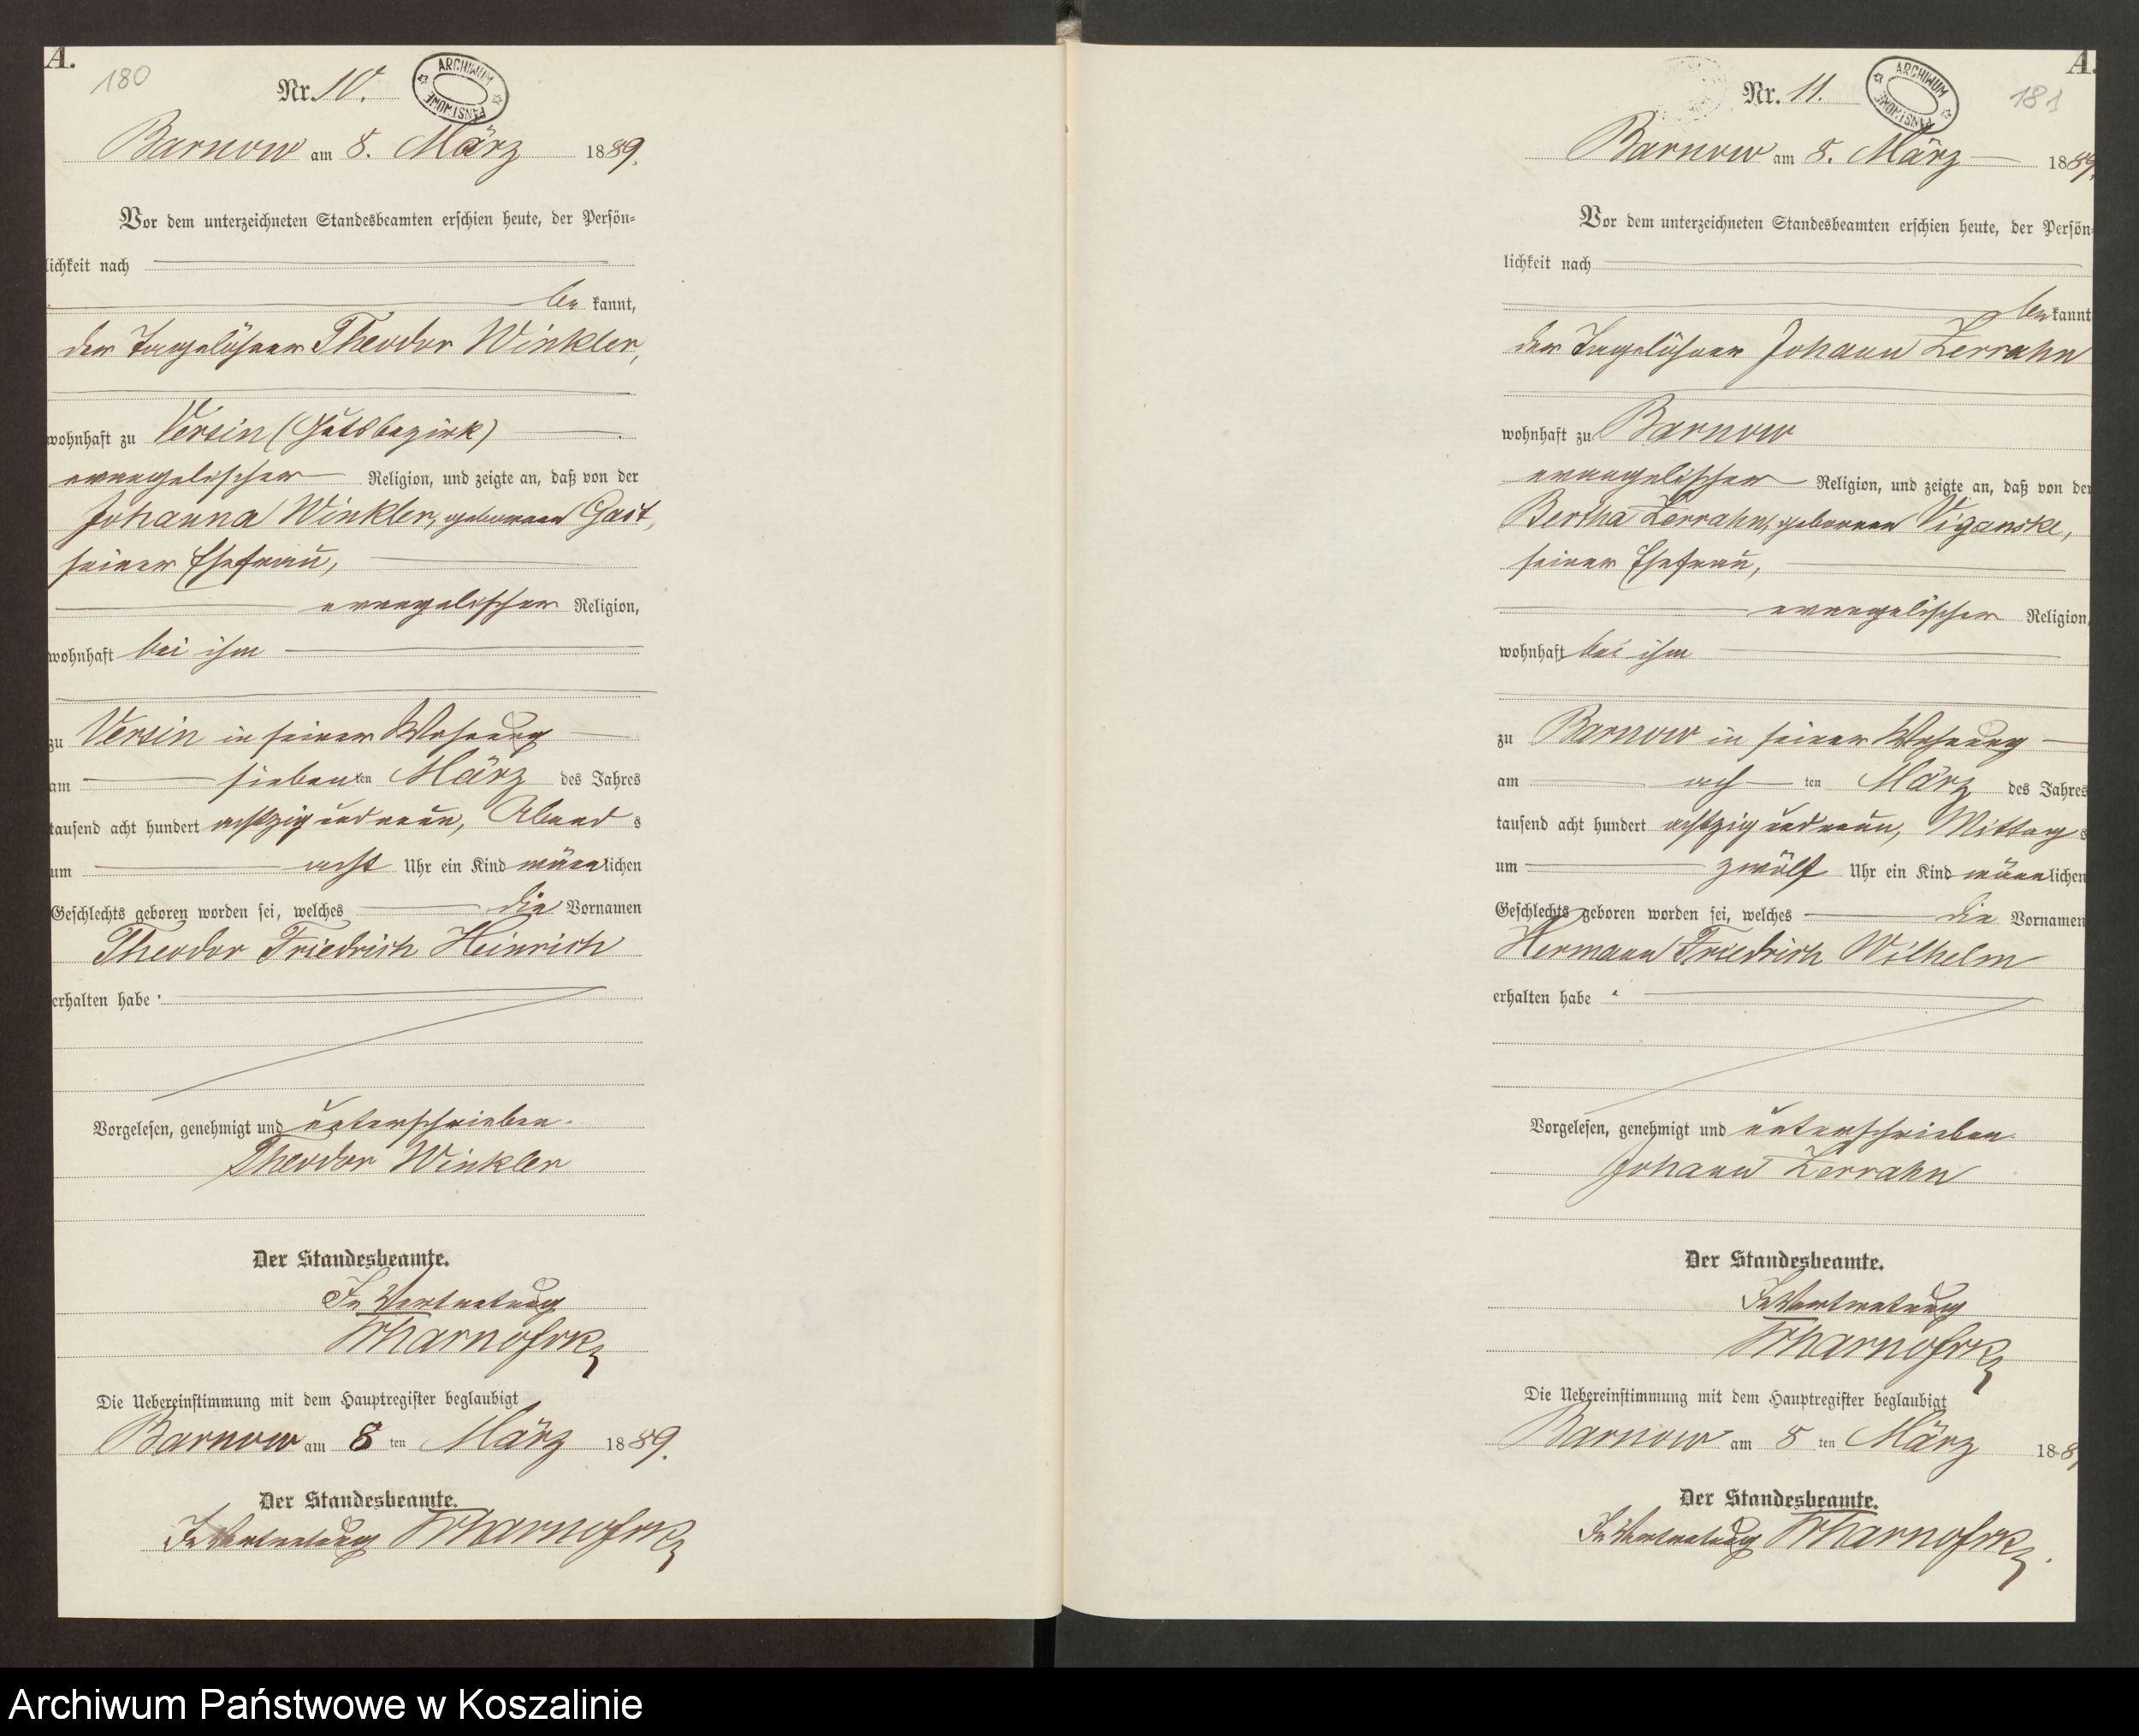 A.
180
Nr. 10.
ARCHIWUM PAŃSTWOWE
Barnow am 8. März 1889.
Vor dem unterzeichneten Standesbeamten erschien heute, der Persön-
lichkeit nach
be kannt,
der Tagelöhner Theodor Winkler,
wohnhaft zu Versin (Gutsbezirk)
evangelischer Religion, und zeigte an, daß von der
Johanna Winkler, geborenen Gast,
seiner Ehefrau,
evangelischer Religion,
wohnhaft bei ihm
zu Versin in seiner Wohnung
am siebenten März des Jahres
tausend acht hundert achtzig und neun, Abends
um acht Uhr ein Kind männlichen
Geschlechts geboren worden sei, welches die Vornamen
Theodor Friedrich Heinrich
erhalten habe.
Vorgelesen, genehmigt und unterschrieben.
Theodor Winkler
Der Standesbeamte.
In Vertretung
Die Uebereinstimmung mit dem Hauptregister beglaubigt
Barnow am 8 ten März 1889.
Der Standesbeamte.
In Vertretung
A.
181
Nr. 11.
ARCHIWUM PAŃSTWOWE
Barnow am 8. März 1889.
Vor dem unterzeichneten Standesbeamten erschien heute, der Persön-
lichkeit nach
be kannt
der Tagelöhner Johann Zerrahn
wohnhaft zu Barnow
evangelischer Religion, und zeigte an, daß von der
Bertha Zerrahn, geborenen Viganske,
seiner Ehefrau,
evangelischer Religion,
wohnhaft bei ihm
zu Barnow in seiner Wohnung
am ach ten März des Jahres
tausend acht hundert achtzig und neun, Mittags
um zwölf Uhr ein Kind männlichen
Geschlechts geboren worden sei, welches die Vornamen
Hermann Friedrich Wilhelm
erhalten habe.
Vorgelesen, genehmigt und unterschrieben.
Johann Zerrahn
Der Standesbeamte.
In Vertretung
Die Uebereinstimmung mit dem Hauptregister beglaubigt
Barnow am 8 ten März 188
Der Standesbeamte.
In Vertretung
Archiwum Państwowe w Koszalinie